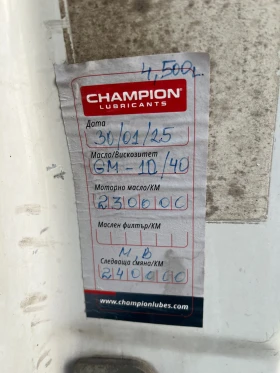 4,500л.
CHAMPION
LUBRICANTS
Дата
30/01/25
Масло/Вискозитет
GM-10/40
Моторно масло/КМ
230000
Маслен филтър/КМ
М,В
Следваща смяна/КМ
240000
www.championlubes.com